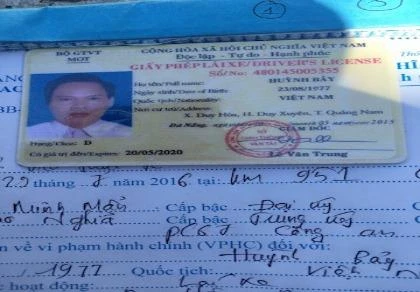 ①
BỘ GTVT
MOT
CỘNG HÒA XÃ HỘI CHỦ NGHĨA VIỆT NAM
Độc lập - Tự do - Hạnh phúc
GIẤY PHÉP LÁI XE/DRIVER'S LICENSE
Số/No: 480145005355
Họ tên/Full name: HUỲNH BẢY
Ngày sinh/Date of Birth: 23/08/1977
Quốc tịch/Nationality: VIỆT NAM
Nơi cư trú/Address:
X. Duy Hòa, H. Duy Xuyên, T. Quảng Nam
Đà Nẵng, 05 2015
GIÁM ĐỐC
Hạng/Class: D
Có giá trị đến/Expires: 20/05/2020
Lê Văn Trung
tháng năm 2016 tại: km 951
Minh Mẫu Cấp bậc Đại úy
Nghĩa Cấp bậc Trung úy
Công an
n về vi phạm hành chính (VPHC) đối với:
Huỳnh Bảy
1977 Quốc tịch: Việt
hoạt động: Lái xe